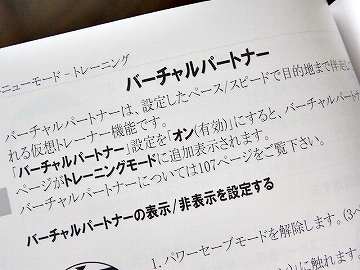 ニューモード－トレーニング
バーチャルパートナー
バーチャルパートナーは、設定したペース/スピードで目的地まで伴走
れる仮想トレーナー機能です。
「バーチャルパートナー」設定を「オン(有効)」にすると、バーチャルパート
ページがトレーニングモードに追加表示されます。
バーチャルパートナーについては107ページをご覧下さい。
バーチャルパートナーの表示/非表示を設定する
1. パワーセーブモードを解除します。(3ペ
に触れます。